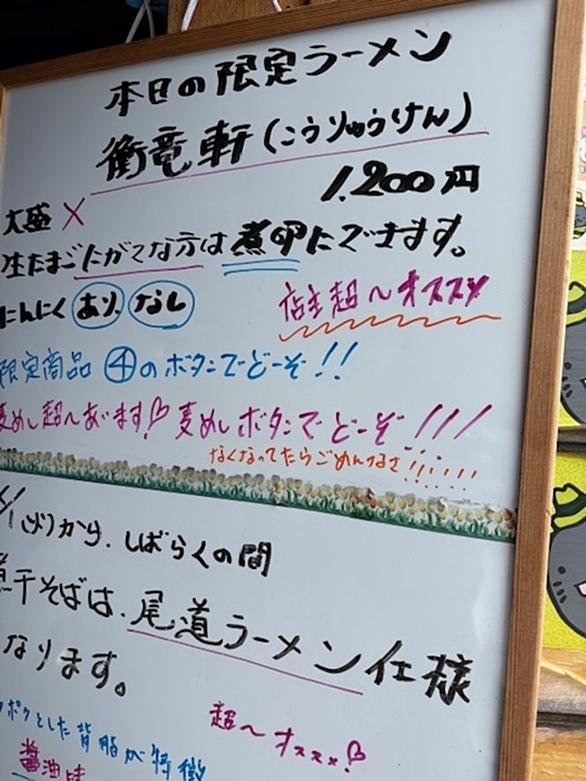 本日の限定ラーメン
衝竜軒(こうりゅうけん)
1,200円
大盛 ×
生たまごにがてな方は煮卵にできます。
にんにく あり、なし
店主超〜オススメ
限定商品 ④のボタンでどーぞ!!
麦めし超〜あいます♡ 麦めしボタンでどーぞ!!!
なくなってたらごめんなさい!!!!!!
から、しばらくの間
煮干そばは、尾道ラーメン仕様
なります。
ポクとした背脂が特徴
醤油味
超〜オススメ!♡